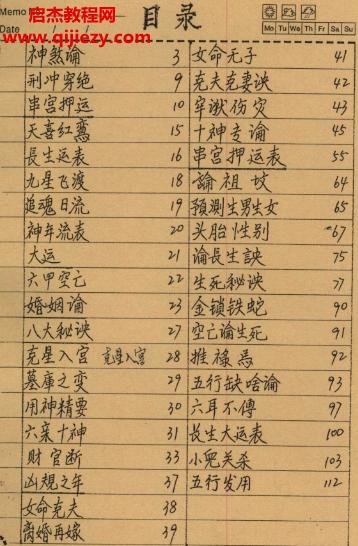 启杰教程网
www.qijiezy.com
Memo
Date
目录
Mo Tu We Th Fr Sa Su
神煞论 3
刑冲穿绝 9
串宫押运 10
天喜红鸾 15
長生运表 16
九星飞渡 18
追魂日流 19
神年流表 20
大运 21
六甲空亡 22
婚姻论 23
八大秘诀 27
克星入宫 克星入宫 28
墓库之变 29
用神精要 30
六亲十神 31
财官断 33
凶规之年 37
女命克夫 38
离婚再嫁 39
女命无子 41
克夫克妻诀 42
牢狱伤灾 43
十神专论 45
串宫押运表 55
論祖坟 64
預測生男生女 65
头胎性别 67
論長生訣 75
生死秘诀 77
金锁铁蛇 90
空亡论生死 91
推禄馬 92
五行缺啥論 93
六耳不傅 97
长生大运表 100
小兜关杀 103
五行发用 112